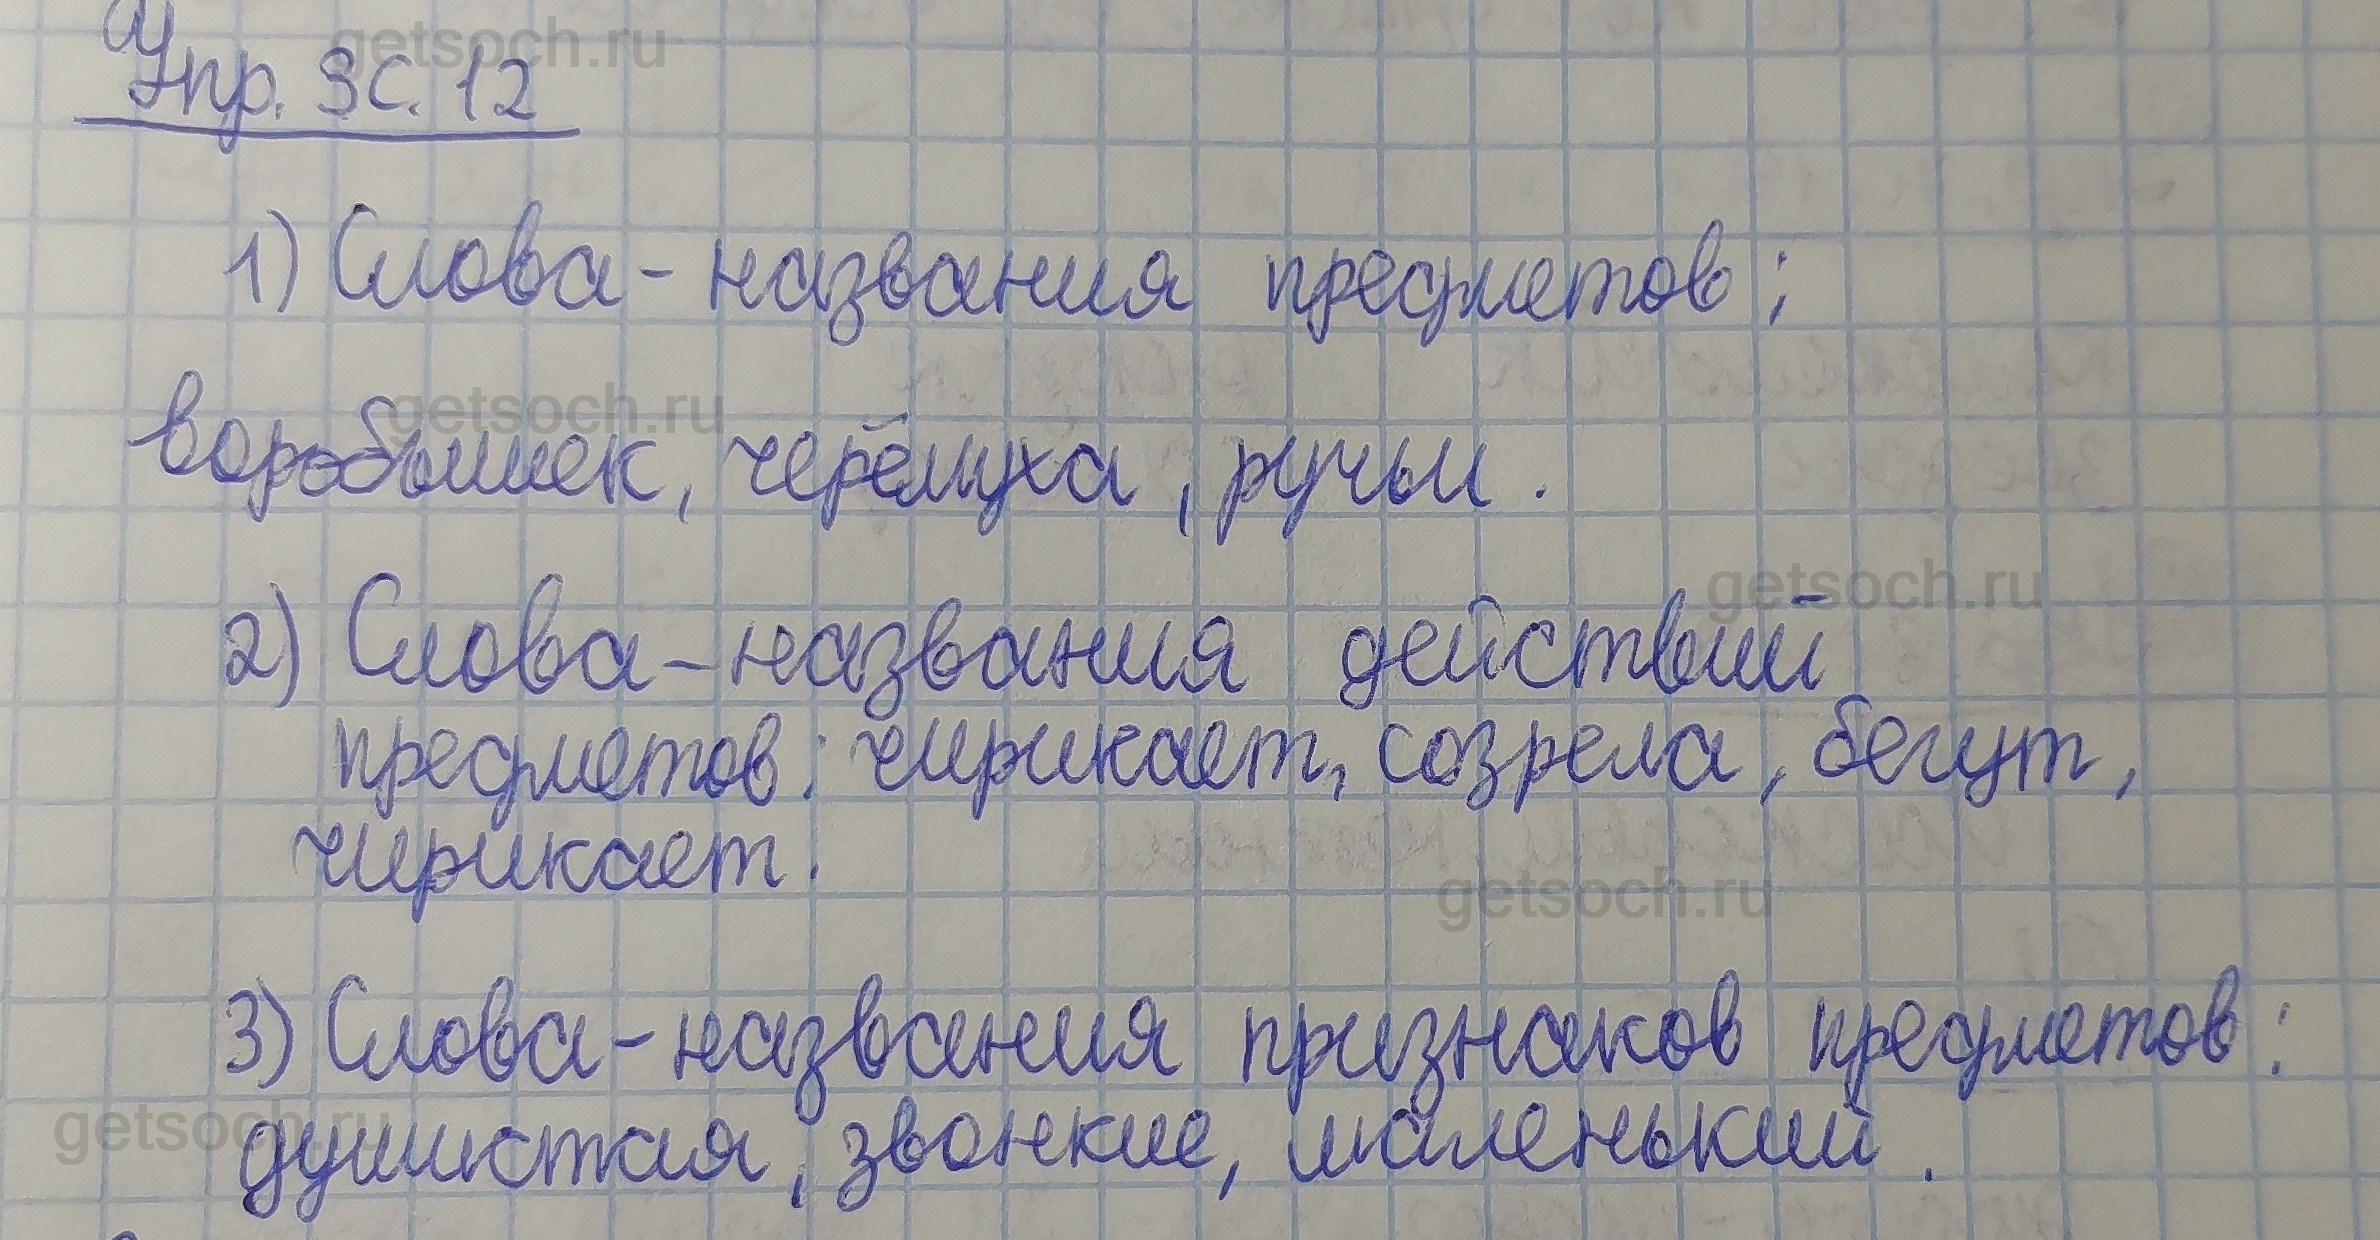 getsoch.ru
Упр. 3 С. 12
1) Слова - названия предметов:
getsoch.ru
воробышек, черёмуха, ручьи.
getsoch.ru
2) Слова - названия действий
предметов: чирикает, созрела, бегут,
чирикает.
getsoch.ru
3) Слова - названия признаков предметов:
getsoch.ru
душистая, звонкие, маленький.